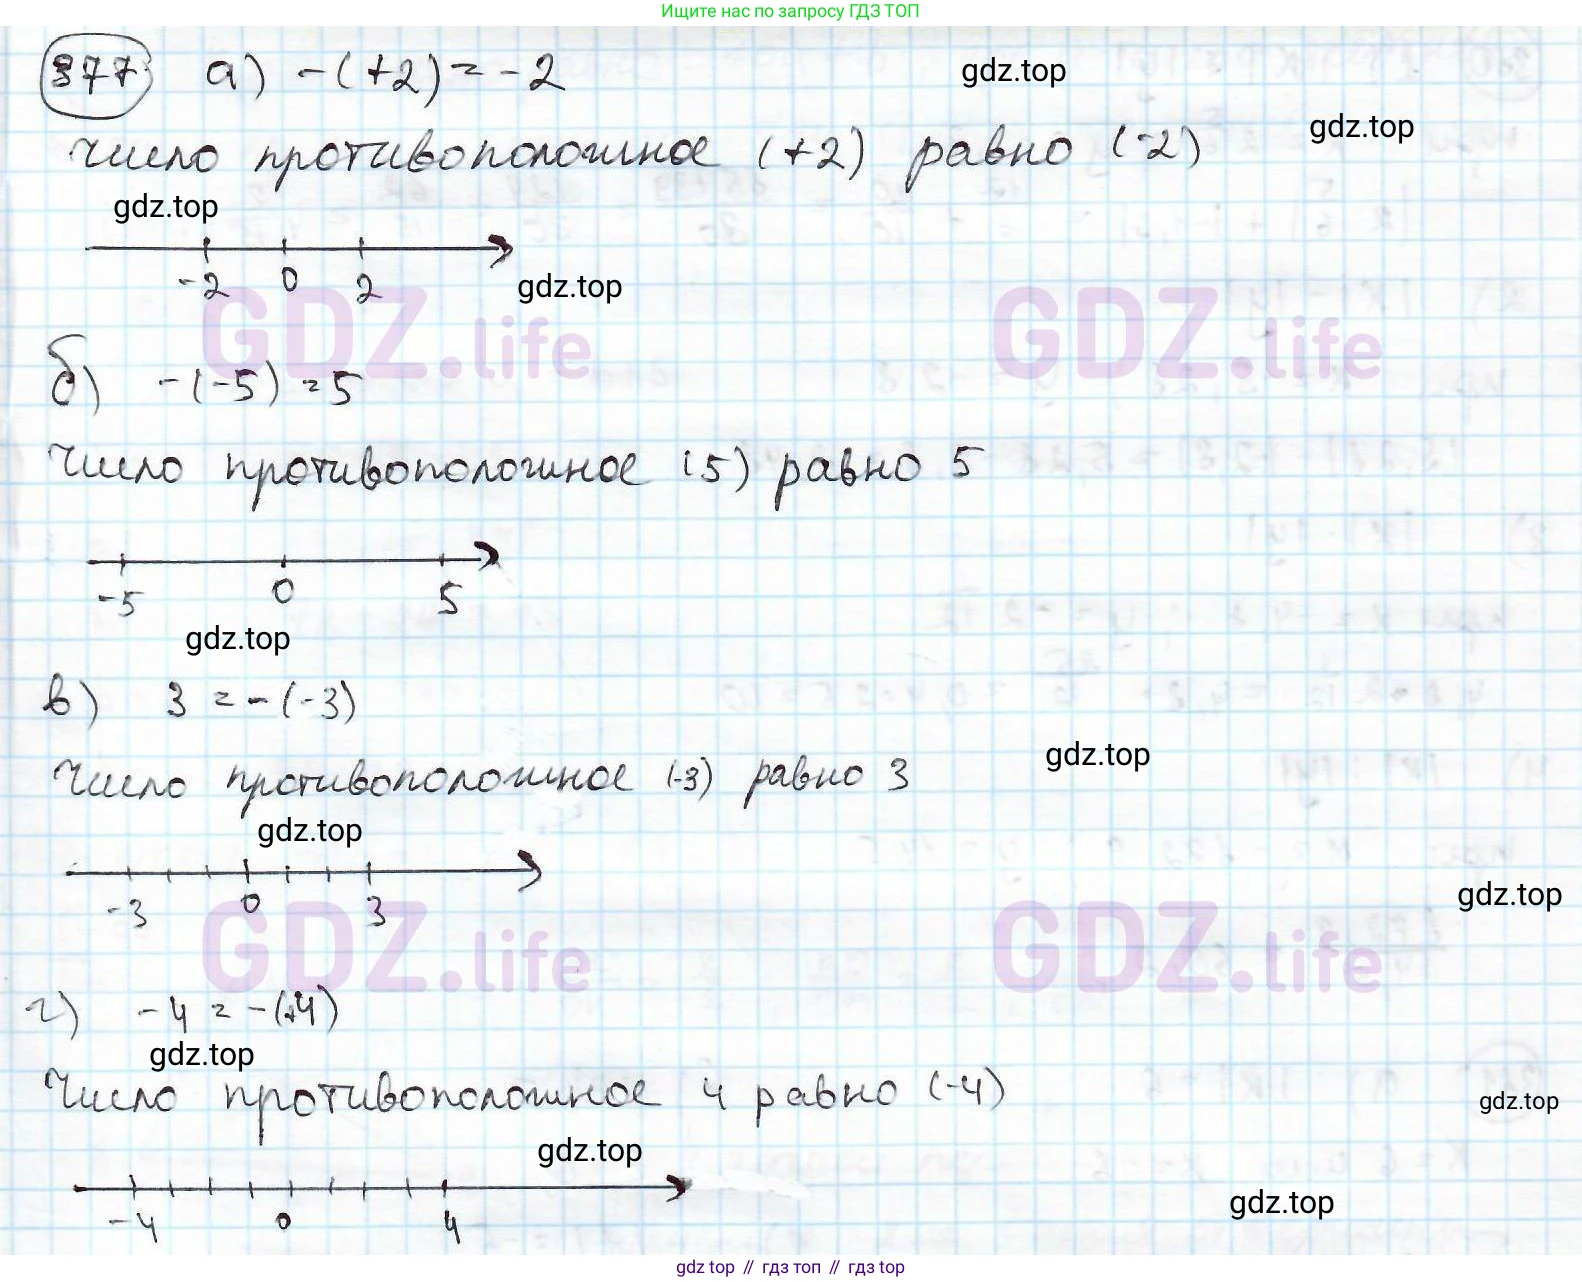 Ищите нас по запросу ГДЗ ТОП
377 а) -(+2) = -2
gdz.top
gdz.top
число противоположное (+2) равно (-2)
gdz.top
-2 0 2
gdz.top
GDZ.life GDZ.life
б) -(-5) = 5
Число противоположное (5) равно 5
-5 0 5
gdz.top
в) 3 = -(-3)
gdz.top
Число противоположное (-3) равно 3
gdz.top
-3 0 3
gdz.top
GDZ.life GDZ.life
г) -4 = -(+4)
gdz.top
Число противоположное 4 равно (-4)
gdz.top
gdz.top
-4 0 4
gdz.top
gdz top // гдз топ // гдз top